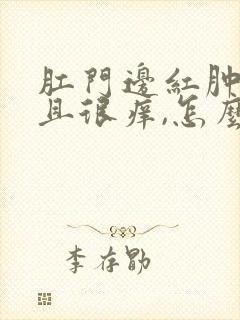 肛門邊紅肿
且很痒,怎麼
李存勖